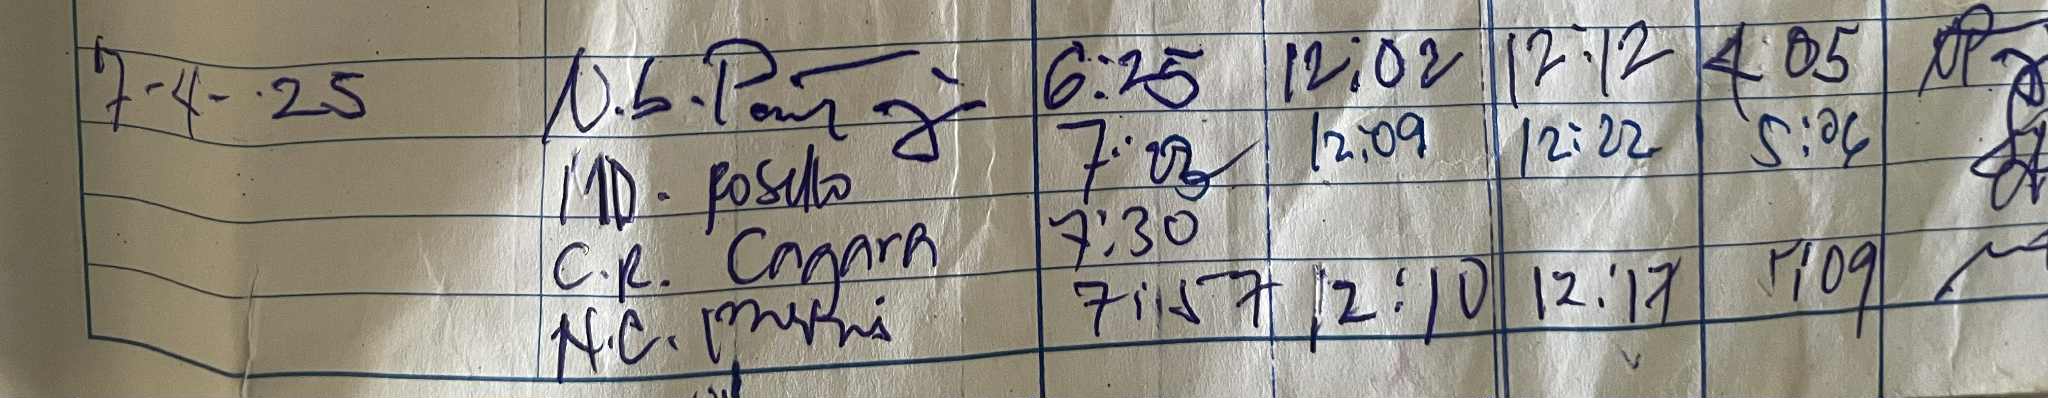 7-4-25 N.S. 6:25 12:02 12:12 4:05
MD. Rosello 7:03 12:09 12:22 5:06
C.R. Cagara 7:30
N.C. 7:57 12:10 12:17 5:09